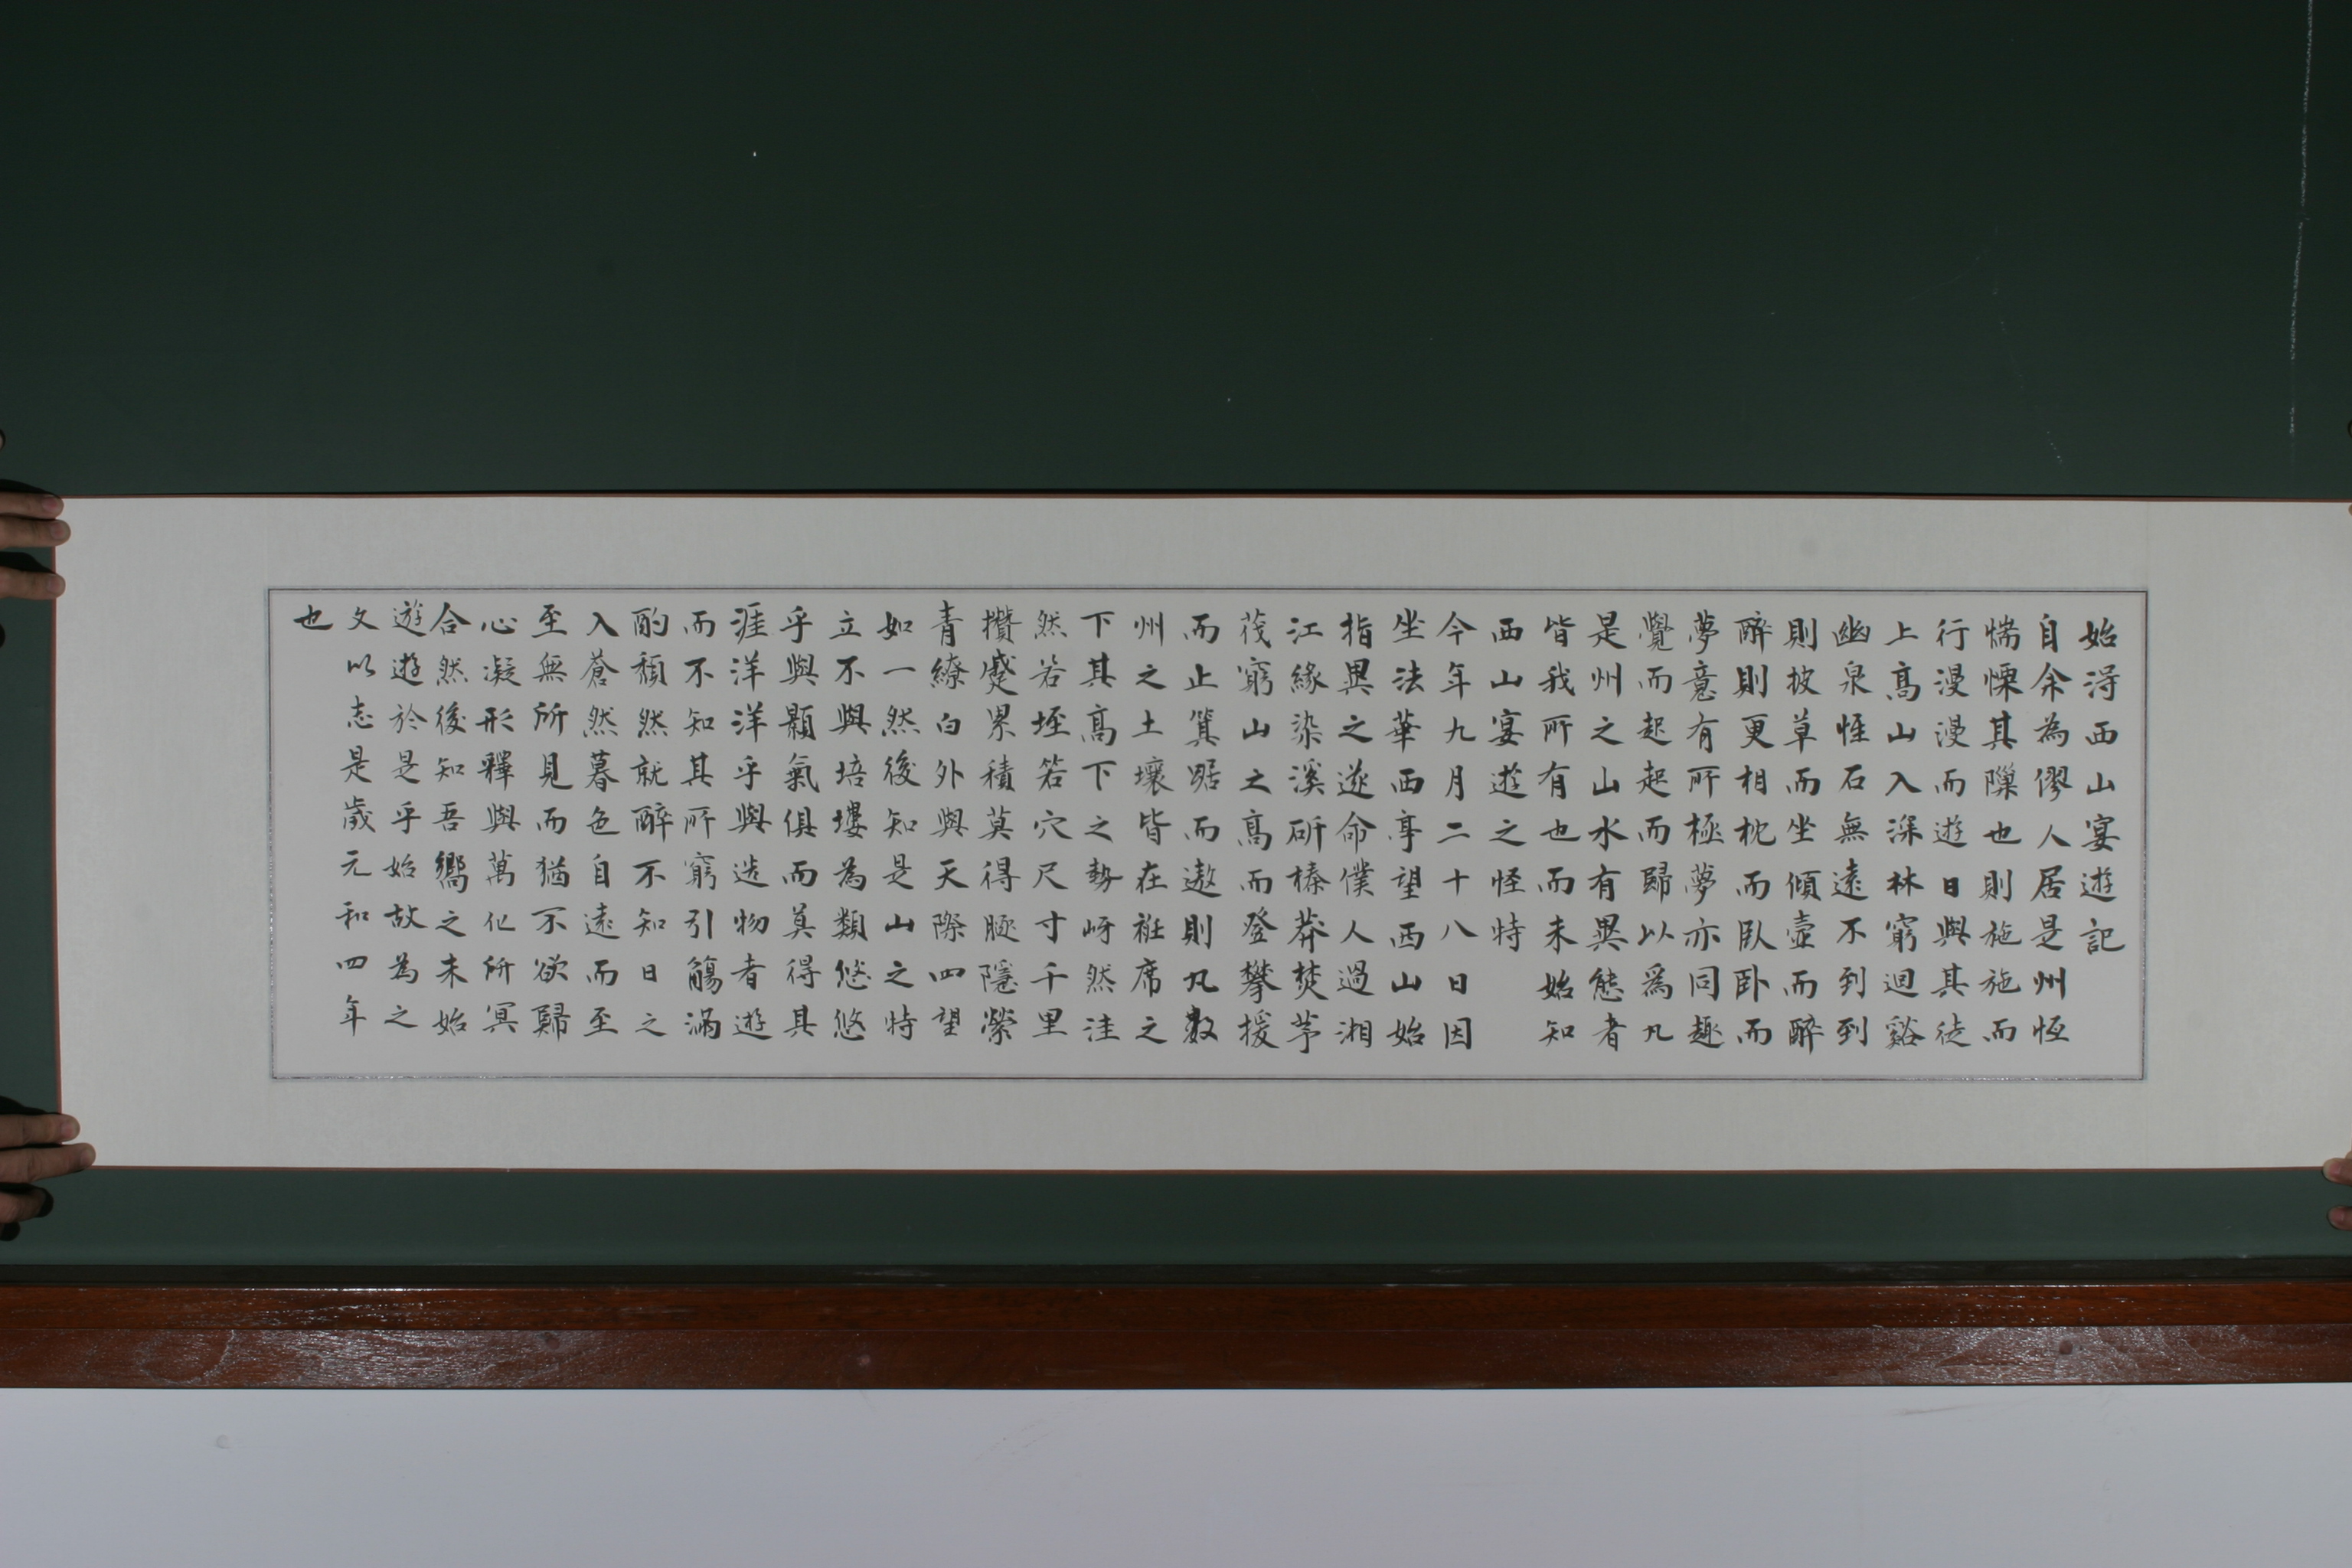 始淂西山宴遊記
自余為僇人居是州恆
惴慄其隟也則施施而
行漫漫而遊日與其徒
上高山入深林窮迴谿
幽泉怪石無遠不到到
則披草而坐傾壺而醉
醉則更相枕而臥臥而
夢意有所極夢亦同趣
覺而起起而歸以爲凡
是州之山水有異態者
皆我所有也而未始知
西山宴遊之怪特
今年九月二十八日因
坐法華西亭望西山始
指異之遂命僕人過湘
江緣染溪斫榛莽焚茅
茷窮山之高而登攀援
而止箕踞而遨則凡數
州之土壤皆在衽席之
下其高下之勢岈然洼
然若垤若穴尺寸千里
攢蹙累積莫得遯隱縈
青繚白外與天際四望
如一然後知是山之特
立不與培塿為類悠悠
乎與顥氣俱而莫得其
涯洋洋乎與造物者遊
而不知其所窮引觴滿
酌頹然就醉不知日之
入蒼然暮色自遠而至
至無所見而猶不欲歸
心凝形釋與萬化所冥
合然後知吾嚮之未始
遊遊於是乎始故為之
文以志是歲元和四年
也